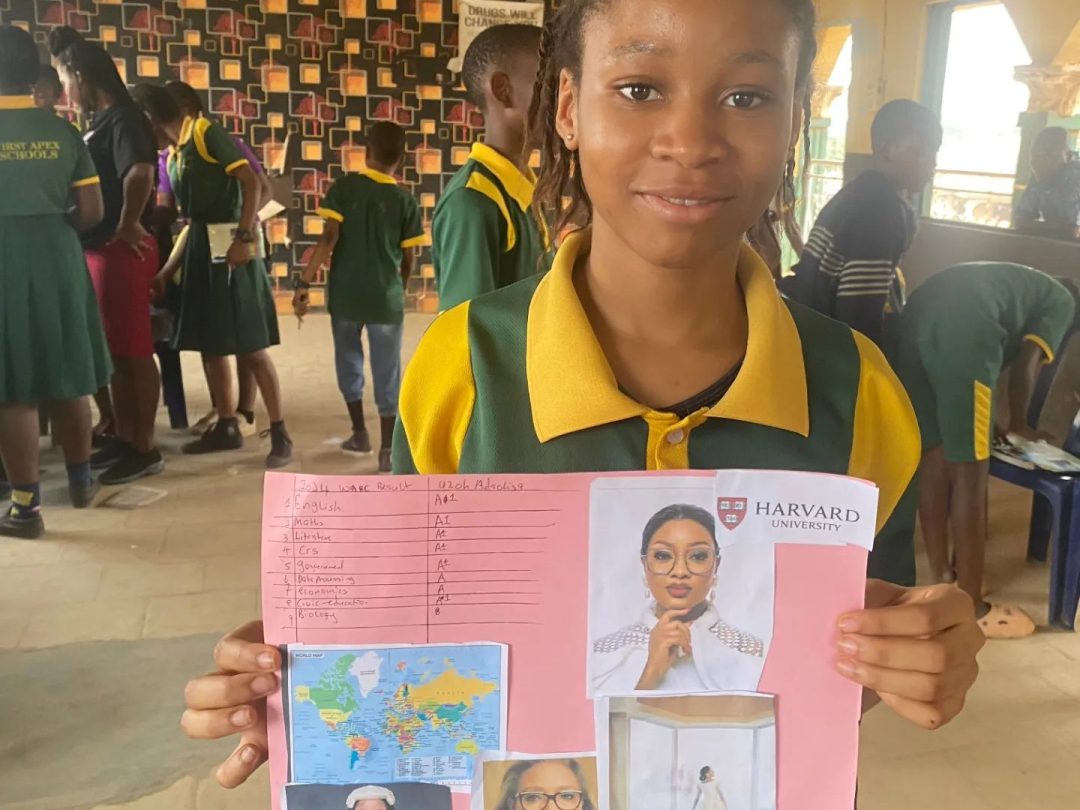 DRUGS WILL
FIRST APEX
SCHOOLS
2024 WAEC Result
1 English A1
2 Maths A1
3 Literature A1
4 Crs A1
5 government A1
6 Data processing A
7 economics A
8 Civic-education A1
9 Biology B
HARVARD
UNIVERSITY
WORLD MAP